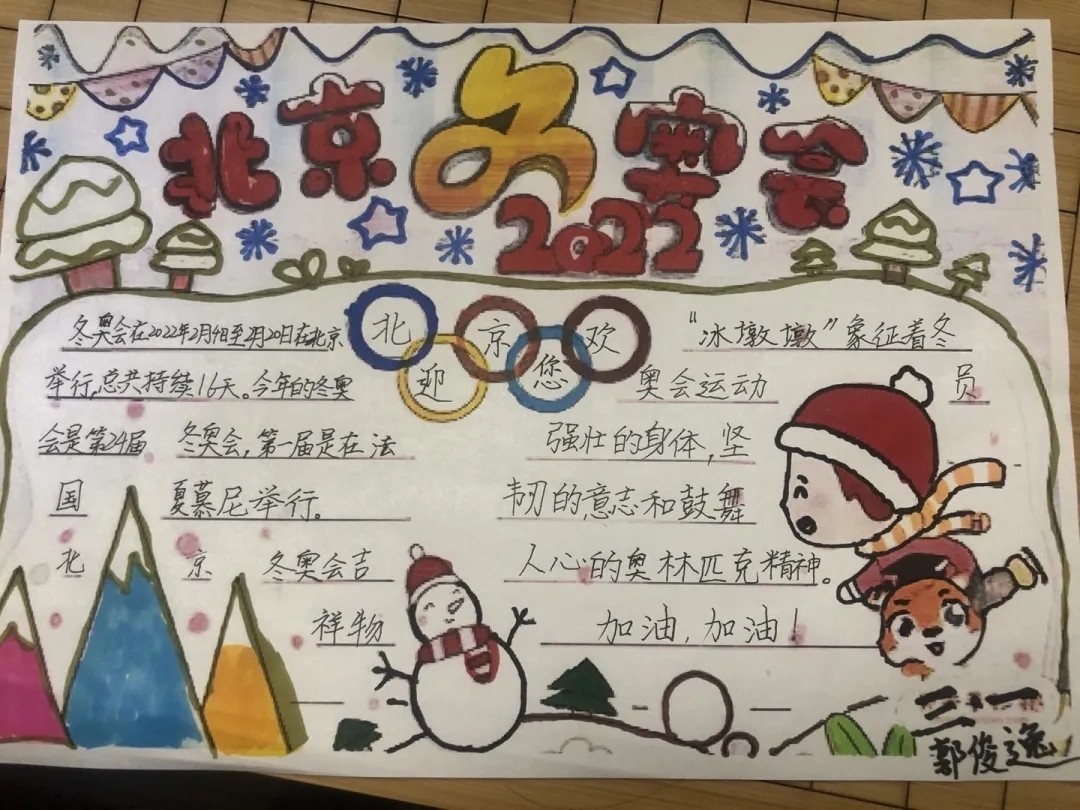 北京冬奥会
2022
北京欢
迎您
冬奥会在2022年2月4日至2月20日在北京
举行,总共持续16天。今年的冬奥
会是第24届 冬奥会,第一届是在法
国 夏慕尼举行。
北 京 冬奥会吉
祥物
“冰墩墩”象征着冬
奥会运动 员
强壮的身体,坚
韧的意志和鼓舞
人心的奥林匹克精神。
加油,加油!
三·一
郭俊逸